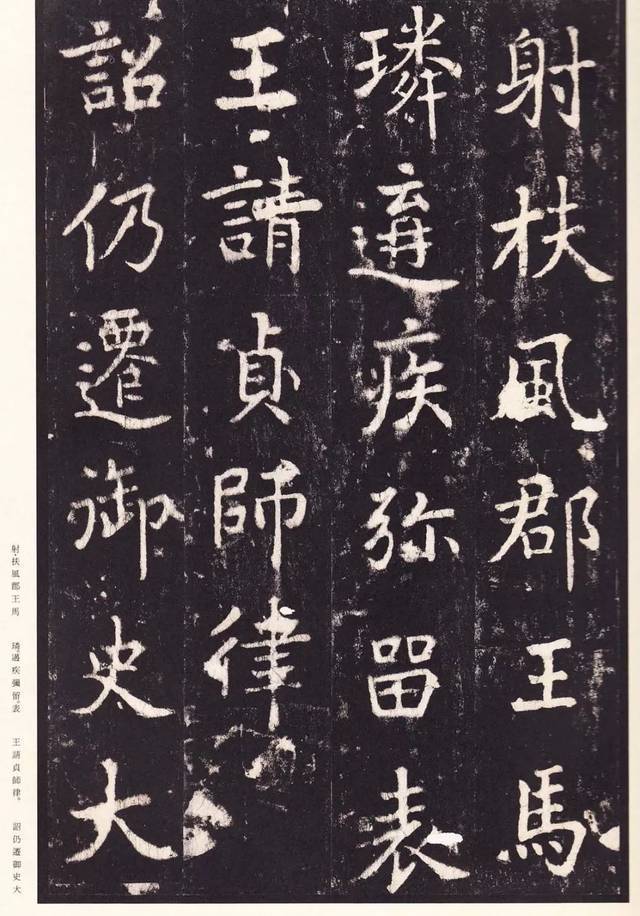 射扶風郡王馬
璘遘疾弥留表
王請貞師律
詔仍遷御史大
射、扶風郡王馬　璘遘疾彌留。表　王請貞師律。　詔仍遷御史大